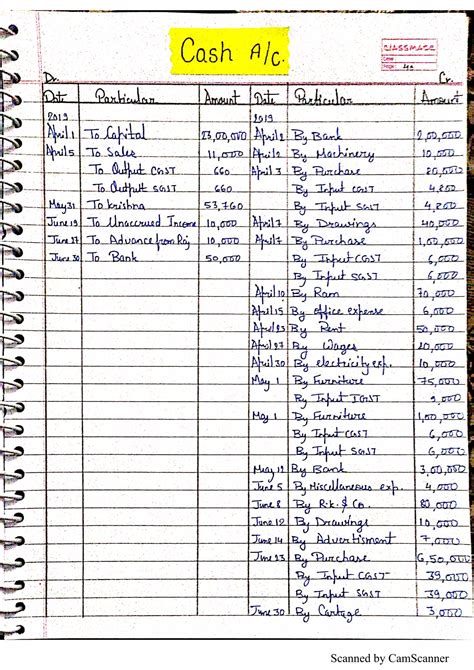 Cash A/c.
CLASSMATE
Date
Page
Dr. Cr.
Date Particular Amount Date Particular Amount
2019 2019
April 1 To Capital 23,00,000 April 2 By Bank 2,00,000
April 5 To Sales 11,000 April 2 By Machinery 10,000
To Output CGST 660 April 3 By Purchase 20,000
To Output SGST 660 By Input CGST 4,200
May 31 To Krishna 53,760 By Input SGST 4,200
June 19 To Unaccrued Income 10,000 April 7 By Drawings 40,000
June 27 To Advance from Raj 10,000 April 7 By Purchase 1,00,000
June 30 To Bank 50,000 By Input CGST 6,000
By Input SGST 6,000
April 10 By Ram 70,000
April 15 By office expense 6,000
April 23 By Rent 50,000
April 27 By Wages 20,000
April 30 By electricity exp. 10,000
May 1 By Furniture 75,000
By Input IGST 9,000
May 1 By Furniture 1,00,000
By Input CGST 6,000
By Input SGST 6,000
May 12 By Bank 3,00,000
June 5 By Miscellaneous exp. 4,000
June 8 By R.k. & Co. 80,000
June 12 By Drawings 10,000
June 14 By Advertisment 7,000
June 23 By Purchase 6,50,000
By Input CGST 39,000
By Input SGST 39,000
June 30 By Cartage 3,000
Scanned by CamScanner